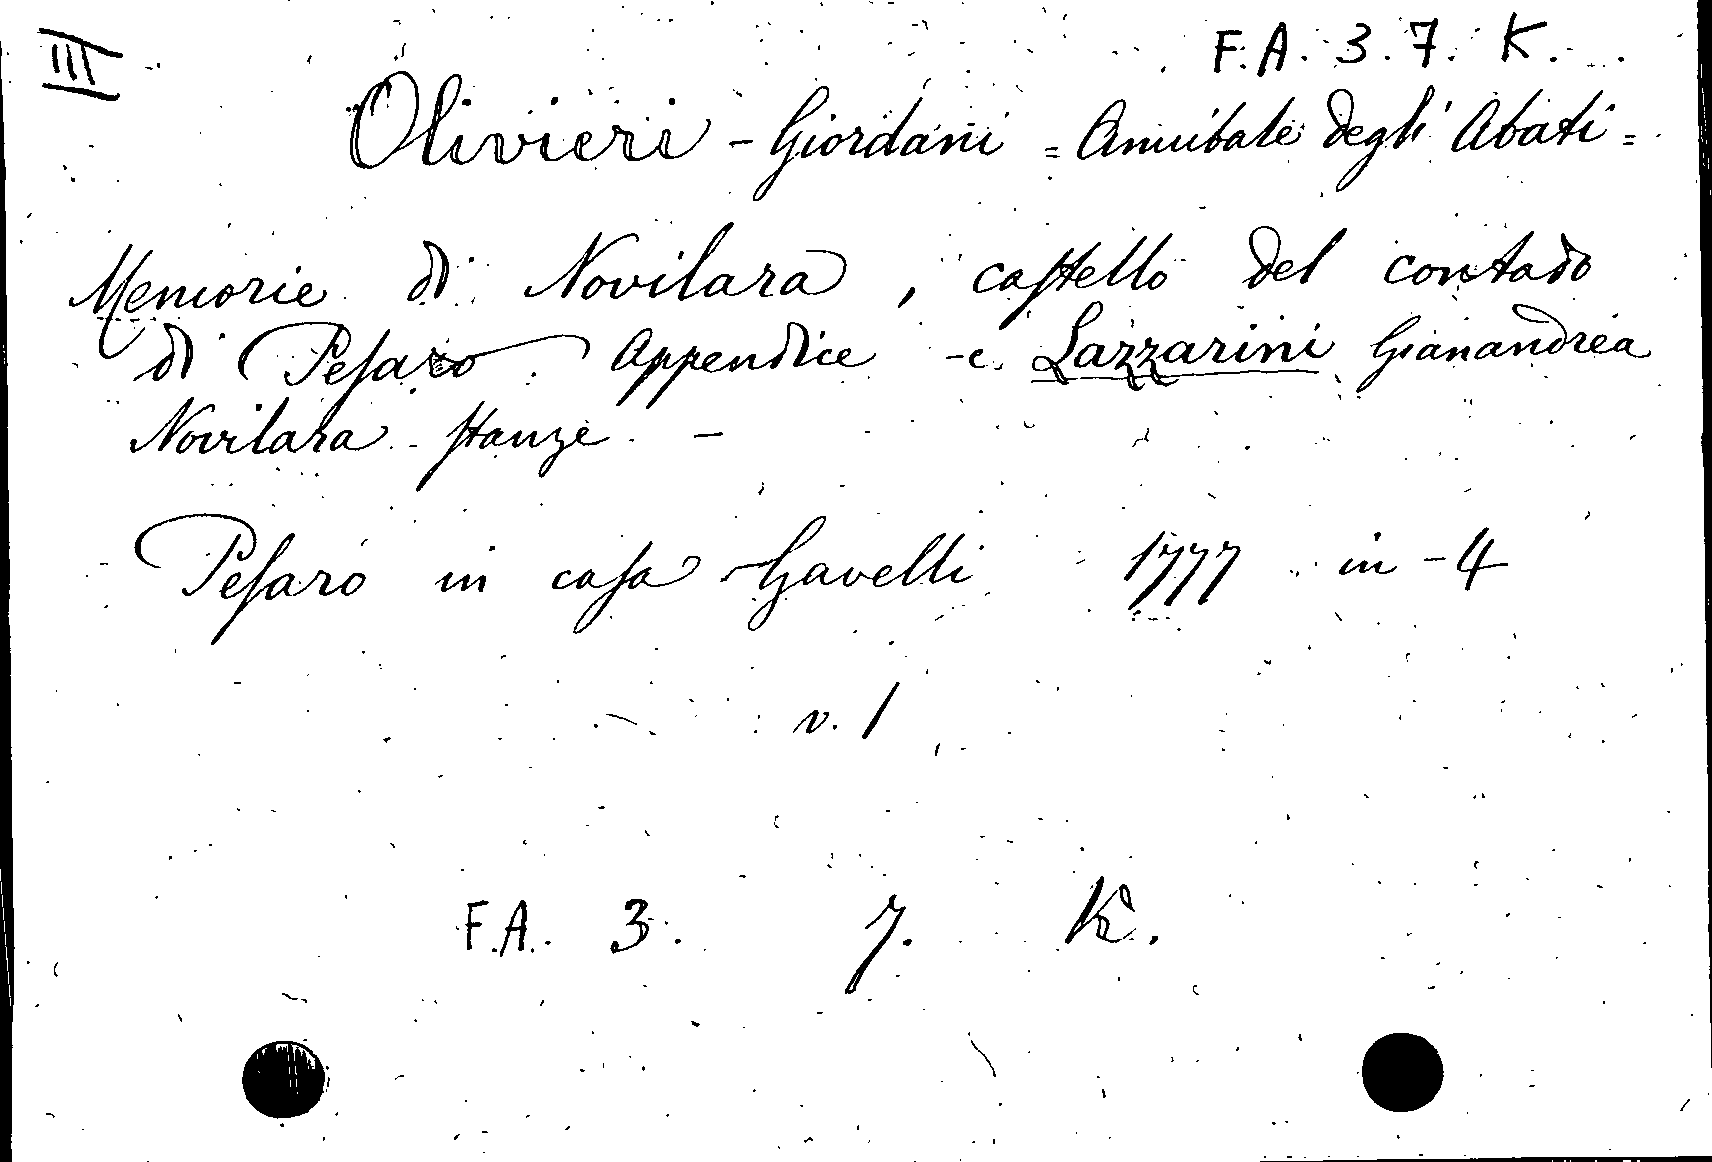 III
F.A. 3. 7. K.
Olivieri - Giordani = Annibale degli Abati =
Memorie di Novilara, castello del contado
di Pesaro. Appendice - e. Lazzarini Gianandrea
Novilara - stanze. -
Pesaro in casa Gavelli 1777 in - 4
v. 1
F.A. 3. 7. K.